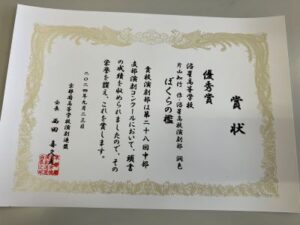 賞状
優秀賞
洛星高等学校
片山知行 作・洛星高校演劇部 潤色
ぼくらの檻
貴校演劇部は第二十八回中部
支部演劇コンクールにおいて、頭書
の成績を収められましたので、その
栄誉を讃え、これを賞します。
二〇二四年九月二三日
京都府高等学校演劇連盟
会長 西田 喜